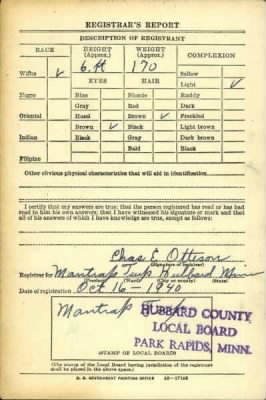 REGISTRAR'S REPORT
DESCRIPTION OF REGISTRANT
RACE HEIGHT (Approx.) WEIGHT (Approx.) COMPLEXION
6 ft 170 Sallow
White ✓ EYES HAIR Light ✓
Negro Blue Blonde Ruddy
Gray Red Dark
Oriental Hazel Brown ✓ Freckled
Brown ✓ Black Light brown
Indian Black Gray Dark brown
Bald Black
Filipino
Other obvious physical characteristics that will aid in identification
I certify that my answers are true; that the person registered has read or has had
read to him his own answers; that I have witnessed his signature or mark and that
all of his answers of which I have knowledge are true, except as follows:
Chas E Otteson
(Signature of registrar)
Registrar for Mantrap Twp Hubbard Minn
(Precinct) (Ward) (City or county) (State)
Date of registration Oct 16 - 1940
Mantrap
HUBBARD COUNTY
LOCAL BOARD
PARK RAPIDS, MINN.
(STAMP OF LOCAL BOARD)
(The stamp of the Local Board having jurisdiction of the registrant
shall be placed in the above space.)
U. S. GOVERNMENT PRINTING OFFICE 16-17105